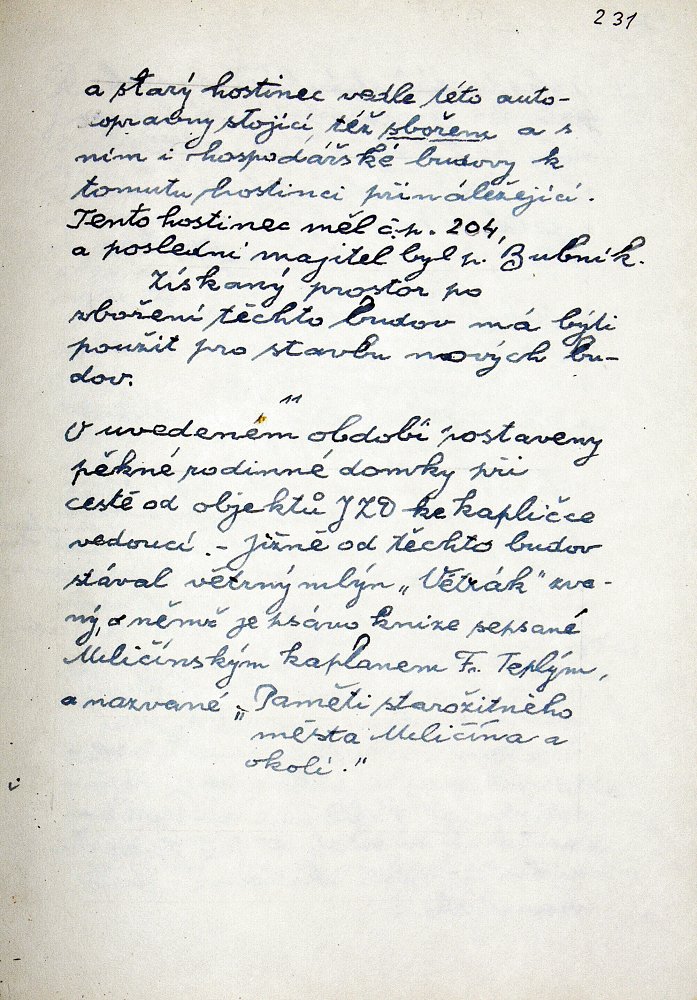 231
a starý hostinec vedle této auto-
opravny stojící, též zbořen a s
ním i hospodářské budovy k
tomutu hostinci přináležející.
Tento hostinec měl č.p. 204,
a poslední majitel byl p. Bubník.
Získaný prostor po
zboření těchto budov má býti
použit pro stavbu nových bu-
dov.
"
V uvedeném období postaveny
pěkné rodinné domky při
cestě od objektů JZD ke kapličce
vedoucí. - Jižně od těchto budov
stával větrný mlýn „Větrák" zva-
ný, o němž je psáno knize sepsané
Miličínským kaplanem Fr. Teplým,
a nazvané „Paměti starožitného
města Miličína a
okolí."